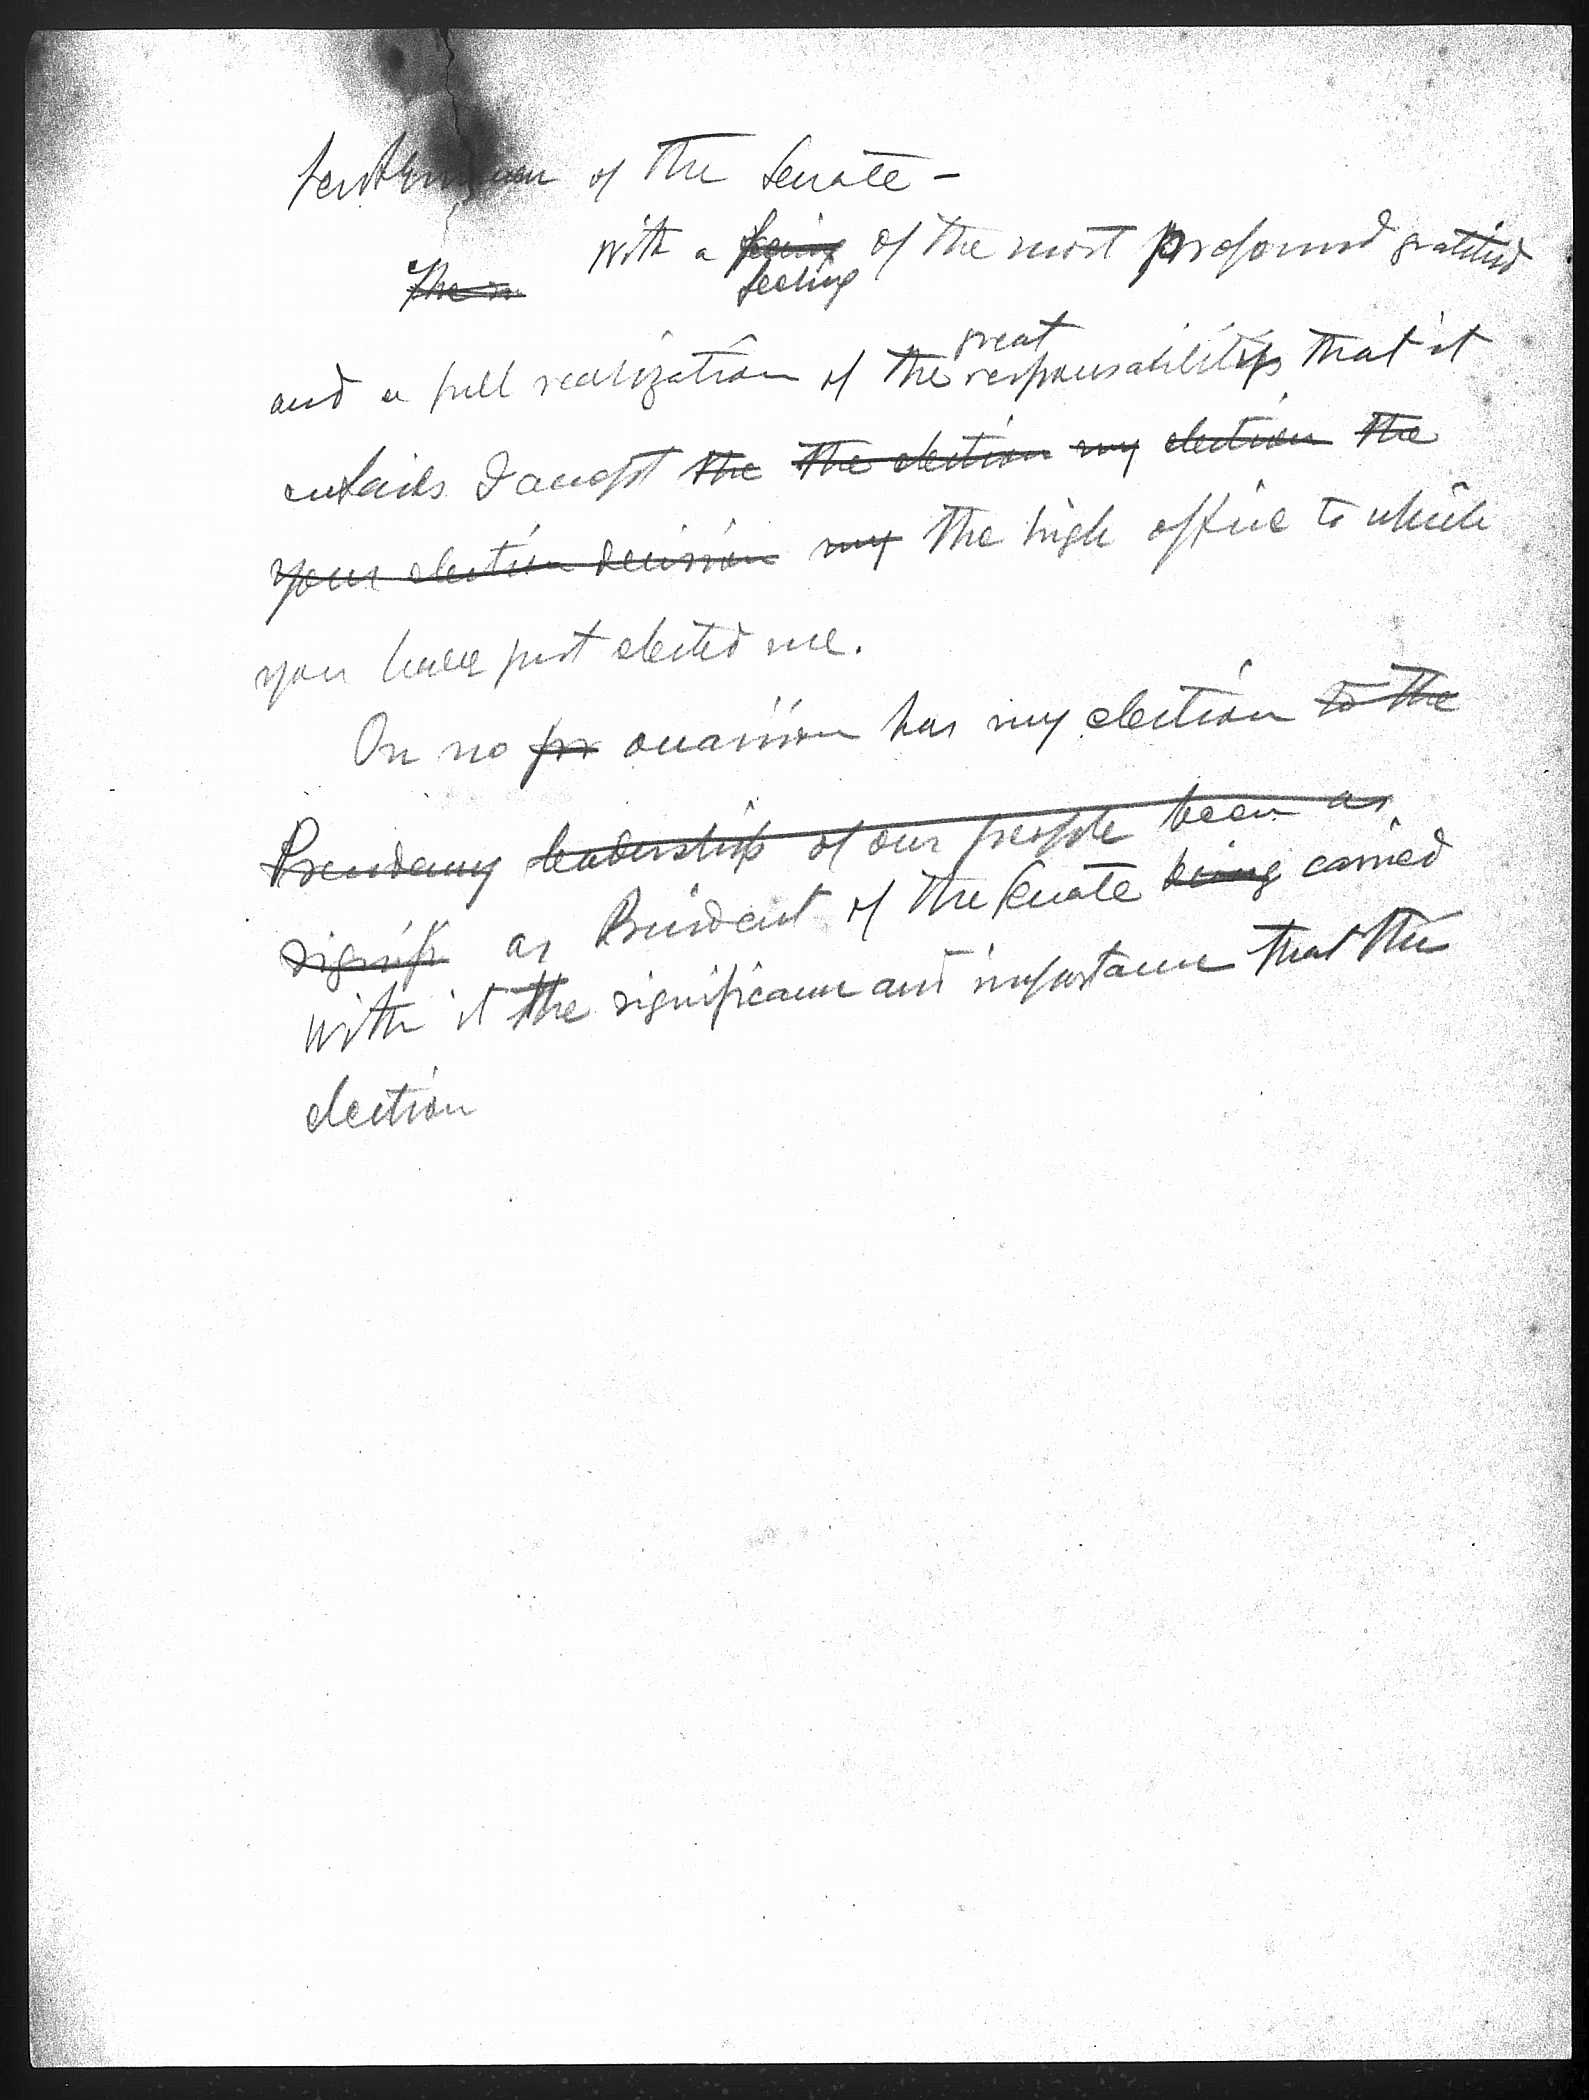 Gentlemen of the Senate –
The s with a feeling of the most profound gratitud
feeling
great
and a full realization of the responsabilitys that it
entails I accept the the election my election the
your election decision my the high office to which
you have just elected me.
On no for occassion has my election to the
Presidency leadership of our people been as
signifi as President of the Senate being carried
with it the significance and importance that the
election